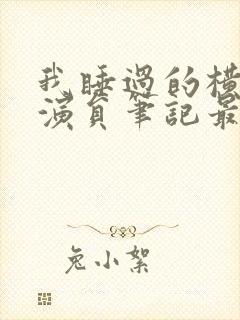 我睡過的橫
演員筆記最
兔小絮